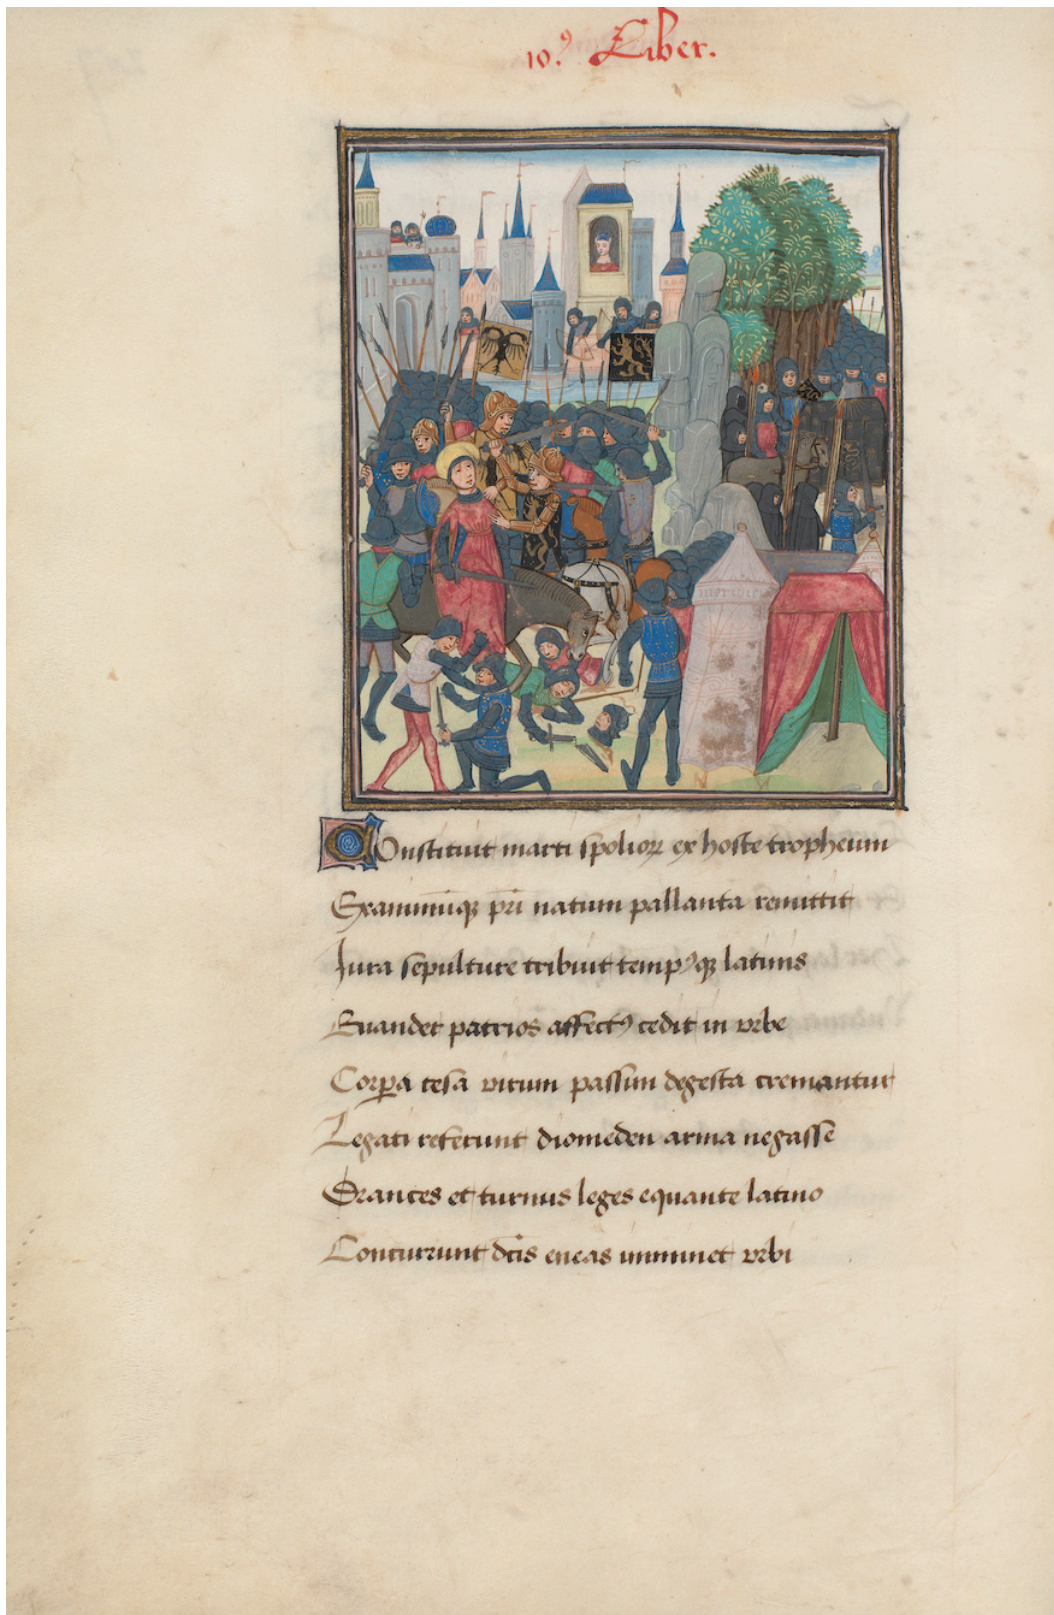 10.⁹ Liber.
meridies
Constituit marti spolioꝝ ex hoste tropheum
Exanimūq; pr̄i natum pallanta remittit
Jura sepulture tribuit temp⁹q; latinis
Euander patrios affect⁹ cedit in vrbe
Corꝑa cesa virum passim degesta cremantur
Legati referunt diomeden arma negasse
Drances et turnus leges equante latino
Concurrunt dc̄is eneas imminet vrbi